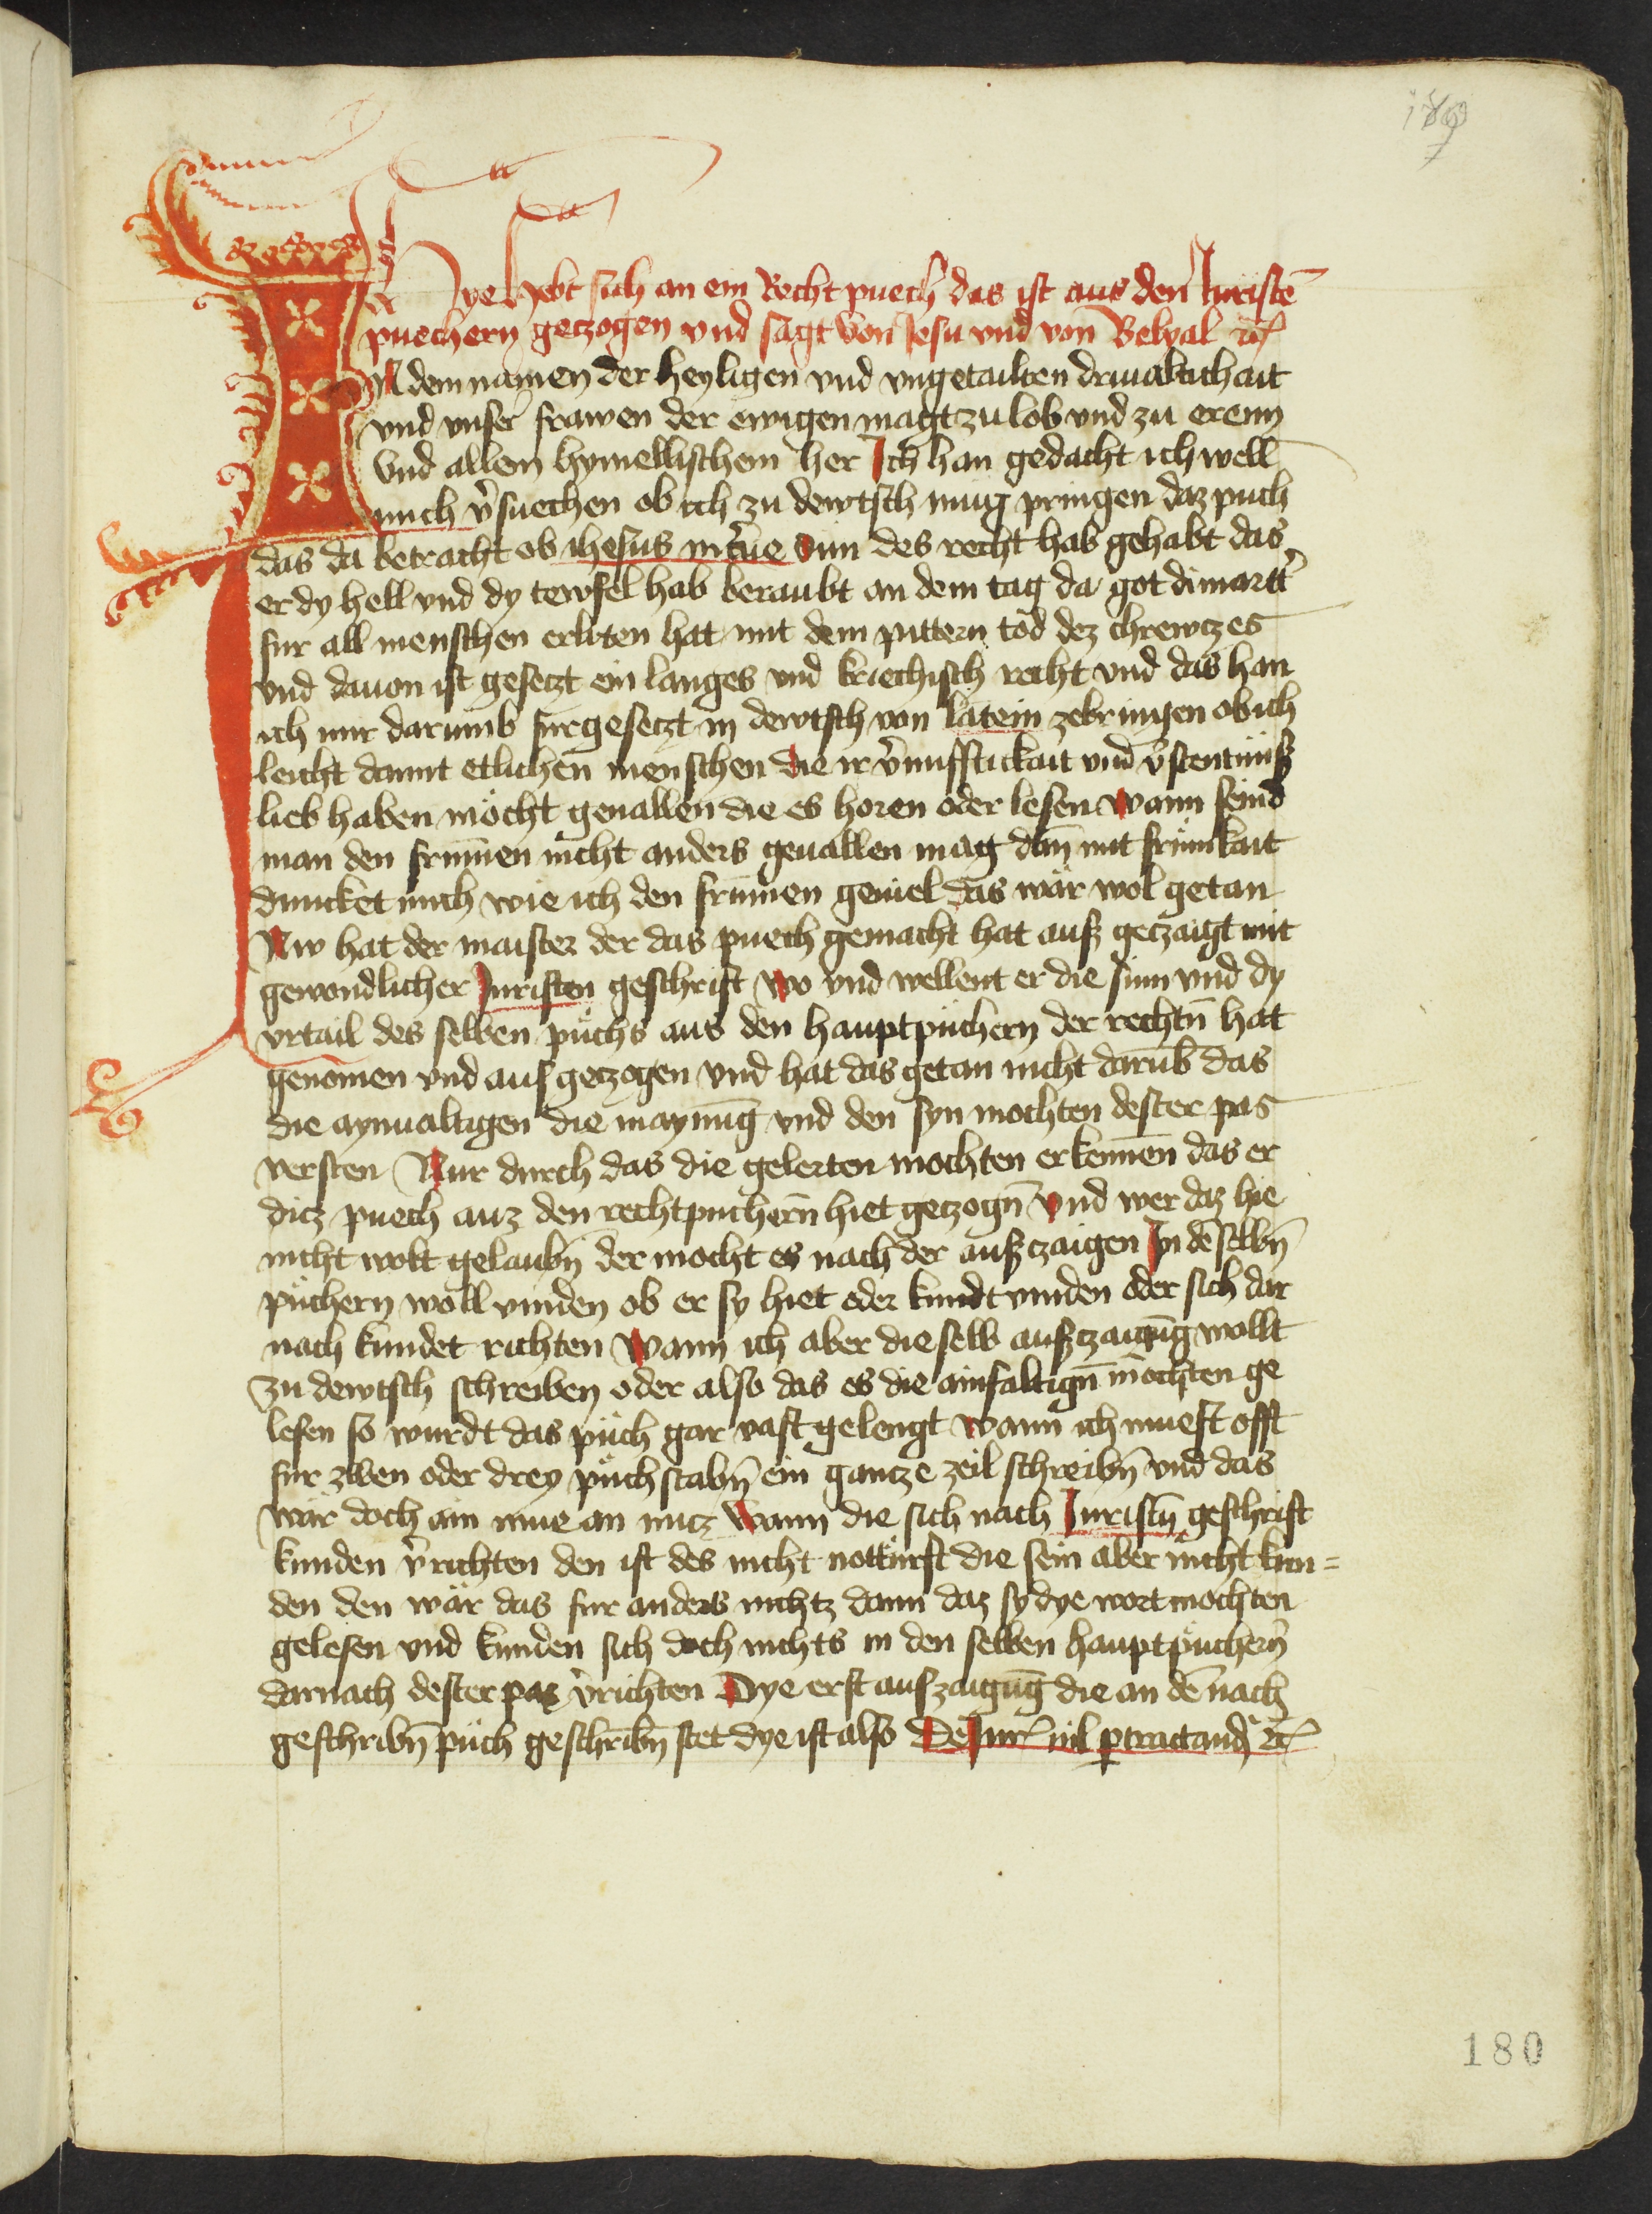 Hye hebt sich an ein Recht puech das ist aus den Juristē
puechern geczogen vnd sagt von Jesu vnd von Belyal ꝛc
IN dem namen der heyligen vnd vngetailten driualtichait
vnd vnser frawen der ewigen magt zu lob vnd zu erenn
Vnd allem hymellischem her Ich han gedacht ich well
mich v̄suechen ob ich zu dewtsch mug pringen daz puch
das da betracht ob ihesus m̄ūe sun des recht hab gehabt das
er dy hell vnd dy tewfel hab beraubt an dem tag da got di martt̄
fur all menschen erliten hat mit dem pittern tod dez chrewczes
vnd dauon ist geseczt ein langes vnd kriechisch recht vnd das han
ich mir darumb furgeseczt in dewtsch von latein zebringen ob ich
leicht damit etlichen menschen die ir v̄nufftickait vnd v̄stentnuß
lieb haben möcht geuallen die es horen oder lesen wann seind
man den frumen nicht anders geuallen mag dañ mit frumkait
duncket mich wie ich den frumen geuiel das wär wol getan
Nw hat der maister der das puech gemacht hat auß geczaigt mit
gewondlicher Juristen geschrift wo vnd wellent er die sinn vnd dy
vrtail des selben püchs aus den hauptpüchern der rechtn̄ hat
genomen vnd aus geczogen vnd hat das getan nicht darūb das
die aynualtigen die maynūg vnd den syn mochten dester pas
versten Nur durch das die gelerten mochten erkennen das er
dicz puech auz den rechtpuchern̄ hiet geczogn̄ vnd wer daz hie
nicht wolt gelaubn̄ der mocht es nach der außczaigen In dē selbn̄
püchern woll vinden ob er sy hiet oder kundt vinden oder sich dar
nach kundet richten wann ich aber die selb außczaigūg wollt
zu dewtsch schreiben oder also das es die ainfaltign̄ möchten ge
lesen so wurdt das püch gar vast gelengt wann ich muest offt
fur zwen oder drey püchstabn̄ ein gantze zeil schreibn̄ vnd das
wär doch ain mue an nucz wann die sich nach Juristn̄ geschrift
kunden v̄richten den ist des nicht notturft die sein aber nicht kun=
den den wär das fur anders nichtz dann daz sy dye wort mochten
gelesen vnd kunden sich doch nichts in den selben hauptpüchern̄
darnach dester paz v̄richten Dye erst auszaigūg die an dē nach
geschribn̄ püch geschribn̄ stet dye ist also De Jur nil ꝑtractand ꝛc
180